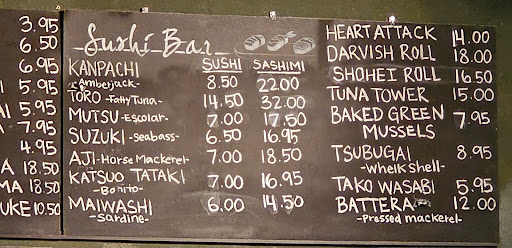 3.95
6.50
6.95
I 5.95
AI 5.95
7.95
4.95
A 18.50
MA 18.50
UKE 10.50
Sushi Bar
SUSHI SASHIMI
KANPACHI 8.50 22.00
-Amberjack-
TORO -Fatty Tuna- 14.50 32.00
MUTSU -Escolar- 7.00 17.50
SUZUKI -seabass- 6.50 16.95
AJI -Horse Mackerel- 7.00 18.50
KATSUO TATAKI 7.00 16.95
-Bonito-
MAIWASHI 6.00 14.50
-Sardine-
HEART ATTACK 14.00
DARVISH ROLL 18.00
SHOHEI ROLL 16.50
TUNA TOWER 15.00
BAKED GREEN 7.95
MUSSELS
TSUBUGAI 8.95
-Whelk Shell-
TAKO WASABI 5.95
BATTERA 12.00
-Pressed mackerel-